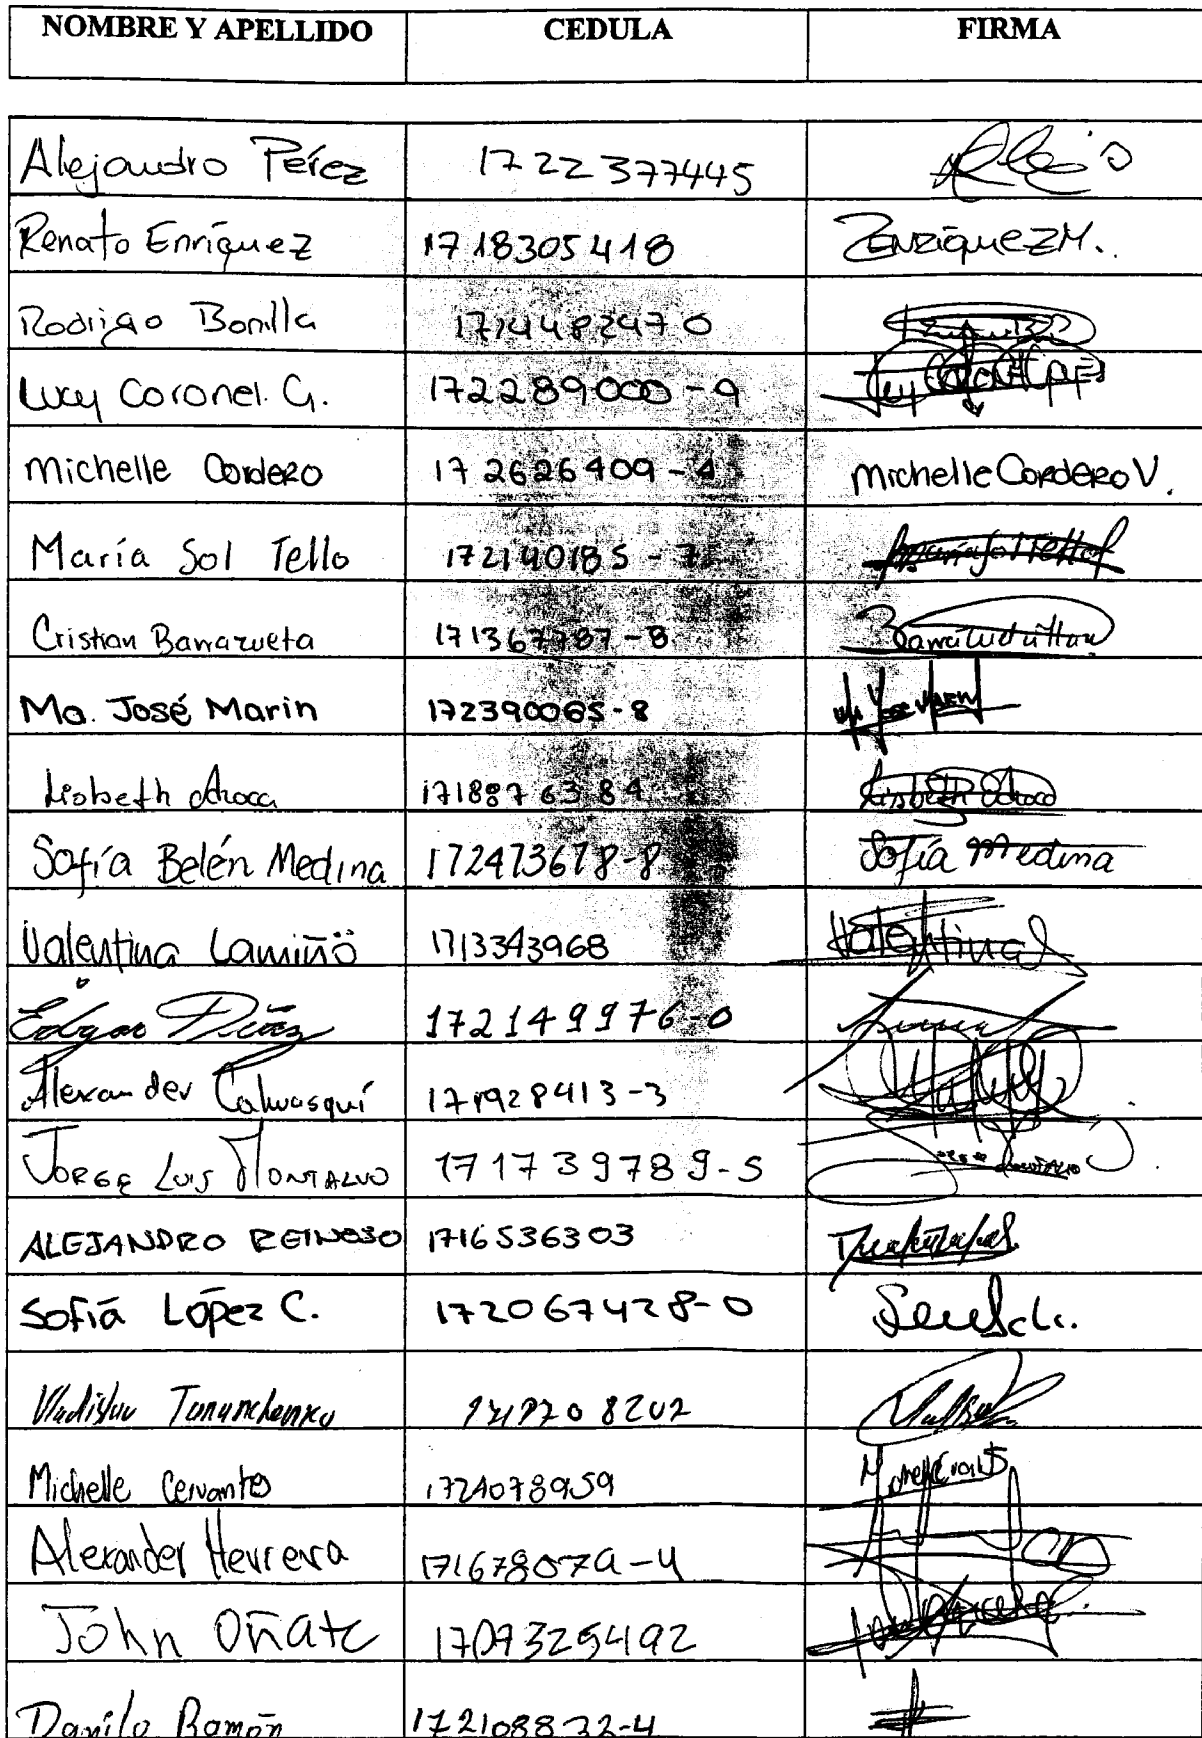 NOMBRE Y APELLIDO CEDULA FIRMA
Alejandro Pérez 1722377445
Renato Enríquez 1718305418 Enríquez M.
Rodrigo Bonilla 1714482470
Lucy Coronel. G. 172289000-9
Michelle Cordero 172626409-4 Michelle Cordero V.
María Sol Tello 172140185-7 María Sol Tello
Cristian Barrazueta 171367787-8
Ma. José Marin 172390065-8
Lisbeth Aroca 1718876384 Lisbeth Aroca
Sofía Belén Medina 172473678-8 Sofía Medina
Valentina Lamiño 1713343968 Valentina
Edgar Díaz 172149976-0
Alexander Cahuasquí 171928413-3
Jorge Luis Montalvo 171739789-5
ALEJANDRO REINOSO 1716536303
Sofía López C. 172067428-0
Vladislav
Michelle Cervantes 1724078959
Alexander Herrera 171678079-4
John Oñate
Danilo Ramón 172108832-4